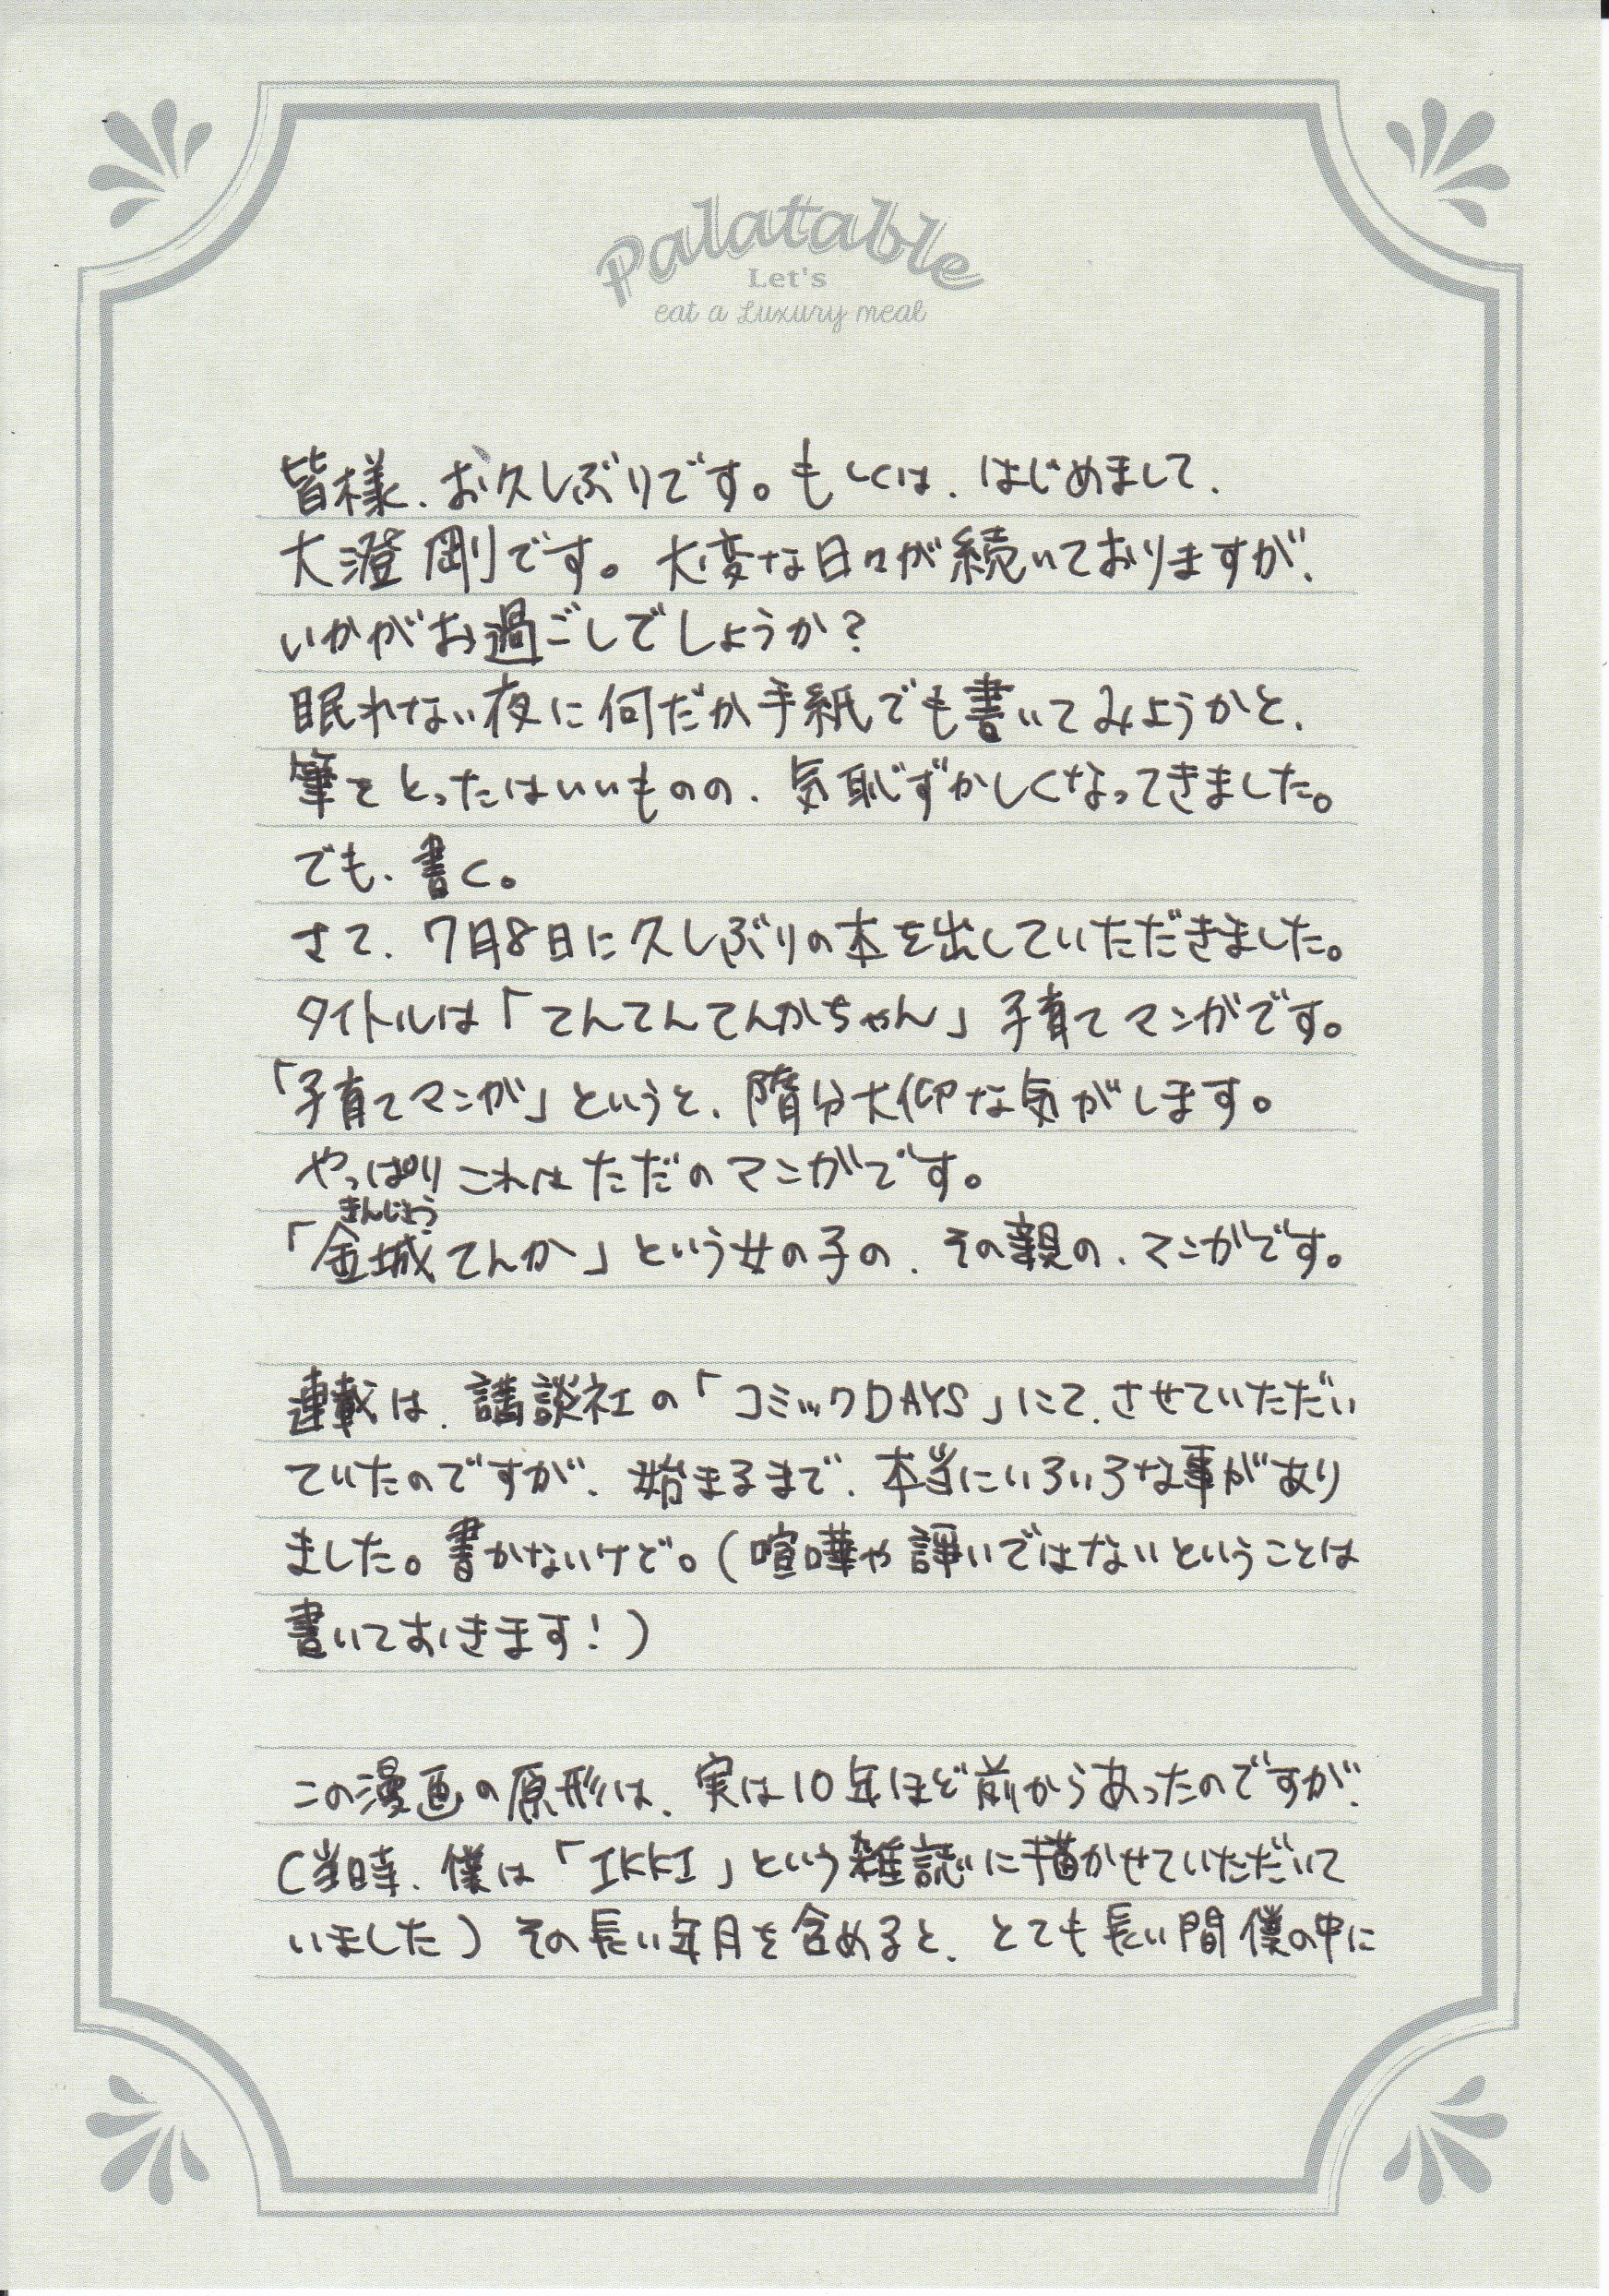 Palatable
Let's
eat a Luxury meal
皆様、お久しぶりです。もしくは、はじめまして、
大澄剛です。大変な日々が続いておりますが、
いかがお過ごしでしょうか？
眠れない夜に何だか手紙でも書いてみようかと、
筆をとったはいいものの、気恥ずかしくなってきました。
でも、書く。
さて、7月8日に久しぶりの本を出していただきました。
タイトルは「てんてんてんかちゃん」子育てマンガです。
「子育てマンガ」というと、随分大仰な気がします。
やっぱりこれはただのマンガです。
きんじょう
「金城てんか」という女の子の、その親の、マンガです。
連載は、講談社の「コミックDAYS」にて、させていただい
ていたのですが、始まるまで、本当にいろいろな事があり
ました。書かないけど。（喧嘩や諍いではないということは
書いておきます！）
この漫画の原形は、実は10年ほど前からあったのですが、
（当時、僕は「IKKI」という雑誌に描かせていただいて
いました）その長い年月を含めると、とても長い間僕の中に